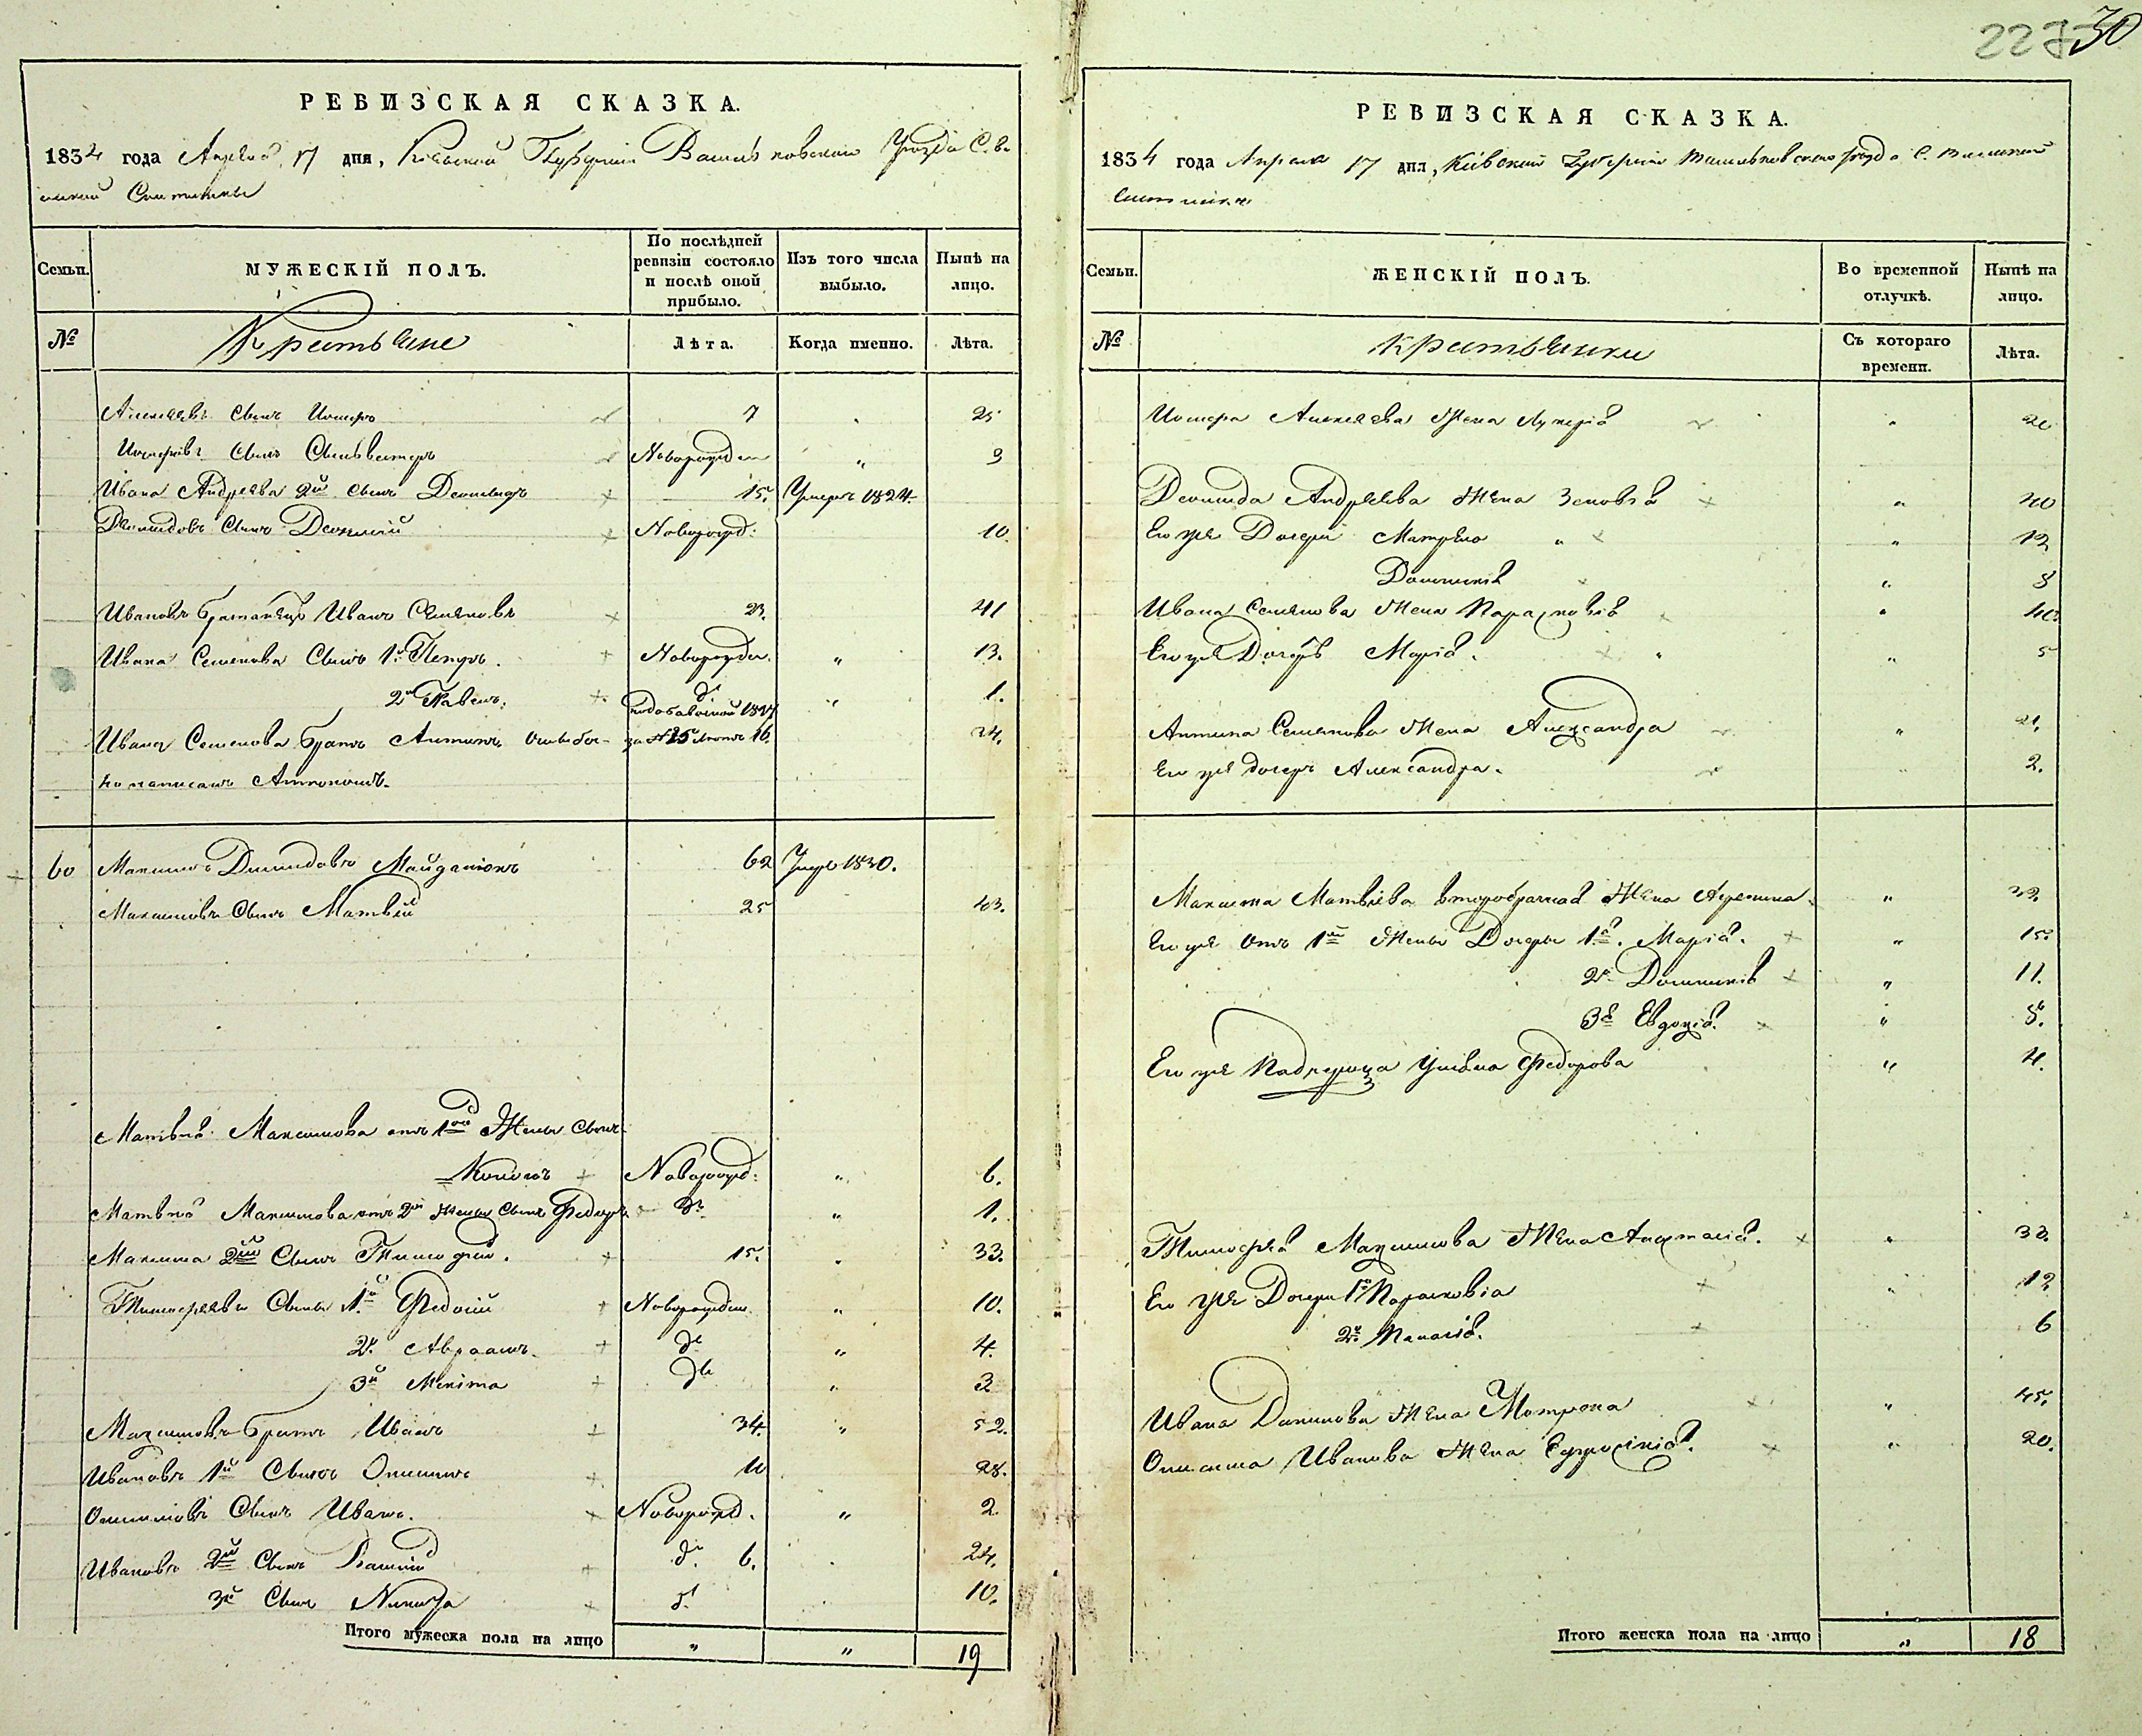 227 30
РЕВИЗСКАЯ СКАЗКА.
1834 года Апреля 17 дня, Кіевской Губерніи Васильковскаго Уезда С. Ве-
ликой Снитинки
Семьи.
МУЖЕСКІЙ ПОЛЪ.
По послѣдней ревизіи состояло и послѣ оной прибыло.
Изъ того числа выбыло.
Нынѣ на лицо.
№
Крестьяне
Лѣта.
Когда именно.
Лѣта.
Алексеевъ Сынъ 7 „ 25
Сынъ Сильвестръ Новорожден „ 3
Ивана Андреева 2й Сынъ Леонидъ 15. Умеръ 1824.
Сынъ Новорожд: 10.
Ивановъ братанецъ Иванъ Семеновъ 23. 41
Ивана Семенова Сынъ 1й Петръ. Новорожден. „ 13.
2й Павелъ. дˢ „ 1.
Ивана Семенова братъ Антинъ ошибоч- по добавочной 1827 за №25 лѣтъ 16. 24.
но написанъ Антономъ.
60 Максимъ Майданюкъ 62 Умеръ 1830.
Максимовъ Сынъ Матвій 25 43.
Матвія Максимова отъ 1ой Жены Сынъ
Кононъ Новорожд: „ 6.
Матвія Максимова отъ 2й Жены Сынъ Федоръ дˢ „ 1.
Максима 2ий Сынъ Тимофей. 15. „ 33.
Тимофеевы Сыны 1й Федосій Новорожден. „ 10.
2й Авраамъ. дˢ „ 4.
3й Мекита дˢ „ 2
Максимовъ братъ Иванъ 34. „ 52.
Ивановъ 1й Сынъ Онисимъ 28.
Онисимовъ Сынъ Иванъ. Новорожд. „ 2.
Ивановъ 2ий Сынъ дˢ 6. 24.
3й Сынъ Никита дˢ 10.
Итого мужеска пола на лицо „ „ 19
РЕВИЗСКАЯ СКАЗКА.
1834 года Апреля 17 дня, Кіевской Губерніи Васильковскаго Уезда С. Великой
Снитинки
Семьи.
ЖЕНСКІЙ ПОЛЪ.
Во временной отлучкѣ.
Нынѣ на лицо.
№
Крестьянки
Съ котораго времени.
Лѣта.
Алексеева Жена Лукерія „ 20
Андреева Жена Зеновія „ 40
Его же Дочери Матрёна „ 12
Домникія „ 8
Ивана Семенова Жена Парасковія „ 40.
Его же Дочерь Марія. „ 5
Антина Семенова Жена Александра „ 21.
Его же дочерь Александра. 2.
Максима Матвіева второбрачная Жена „
Его же отъ 1ой Жены Дочери 1я. Марія. „ 15.
2я Домникія „ 11.
3я Евдокія. „ 8.
Его же Падчерица Уліяна Федорова „ 4.
Тимофея Максимова Жена Анастасія. „ 33.
Его же Дочери 1я Парасковія „ 12
2я 6
Ивана Жена Мотрона „ 45.
Онисима Иванова Жена Ефросинія. „ 20.
Итого женска пола на лицо „ 18